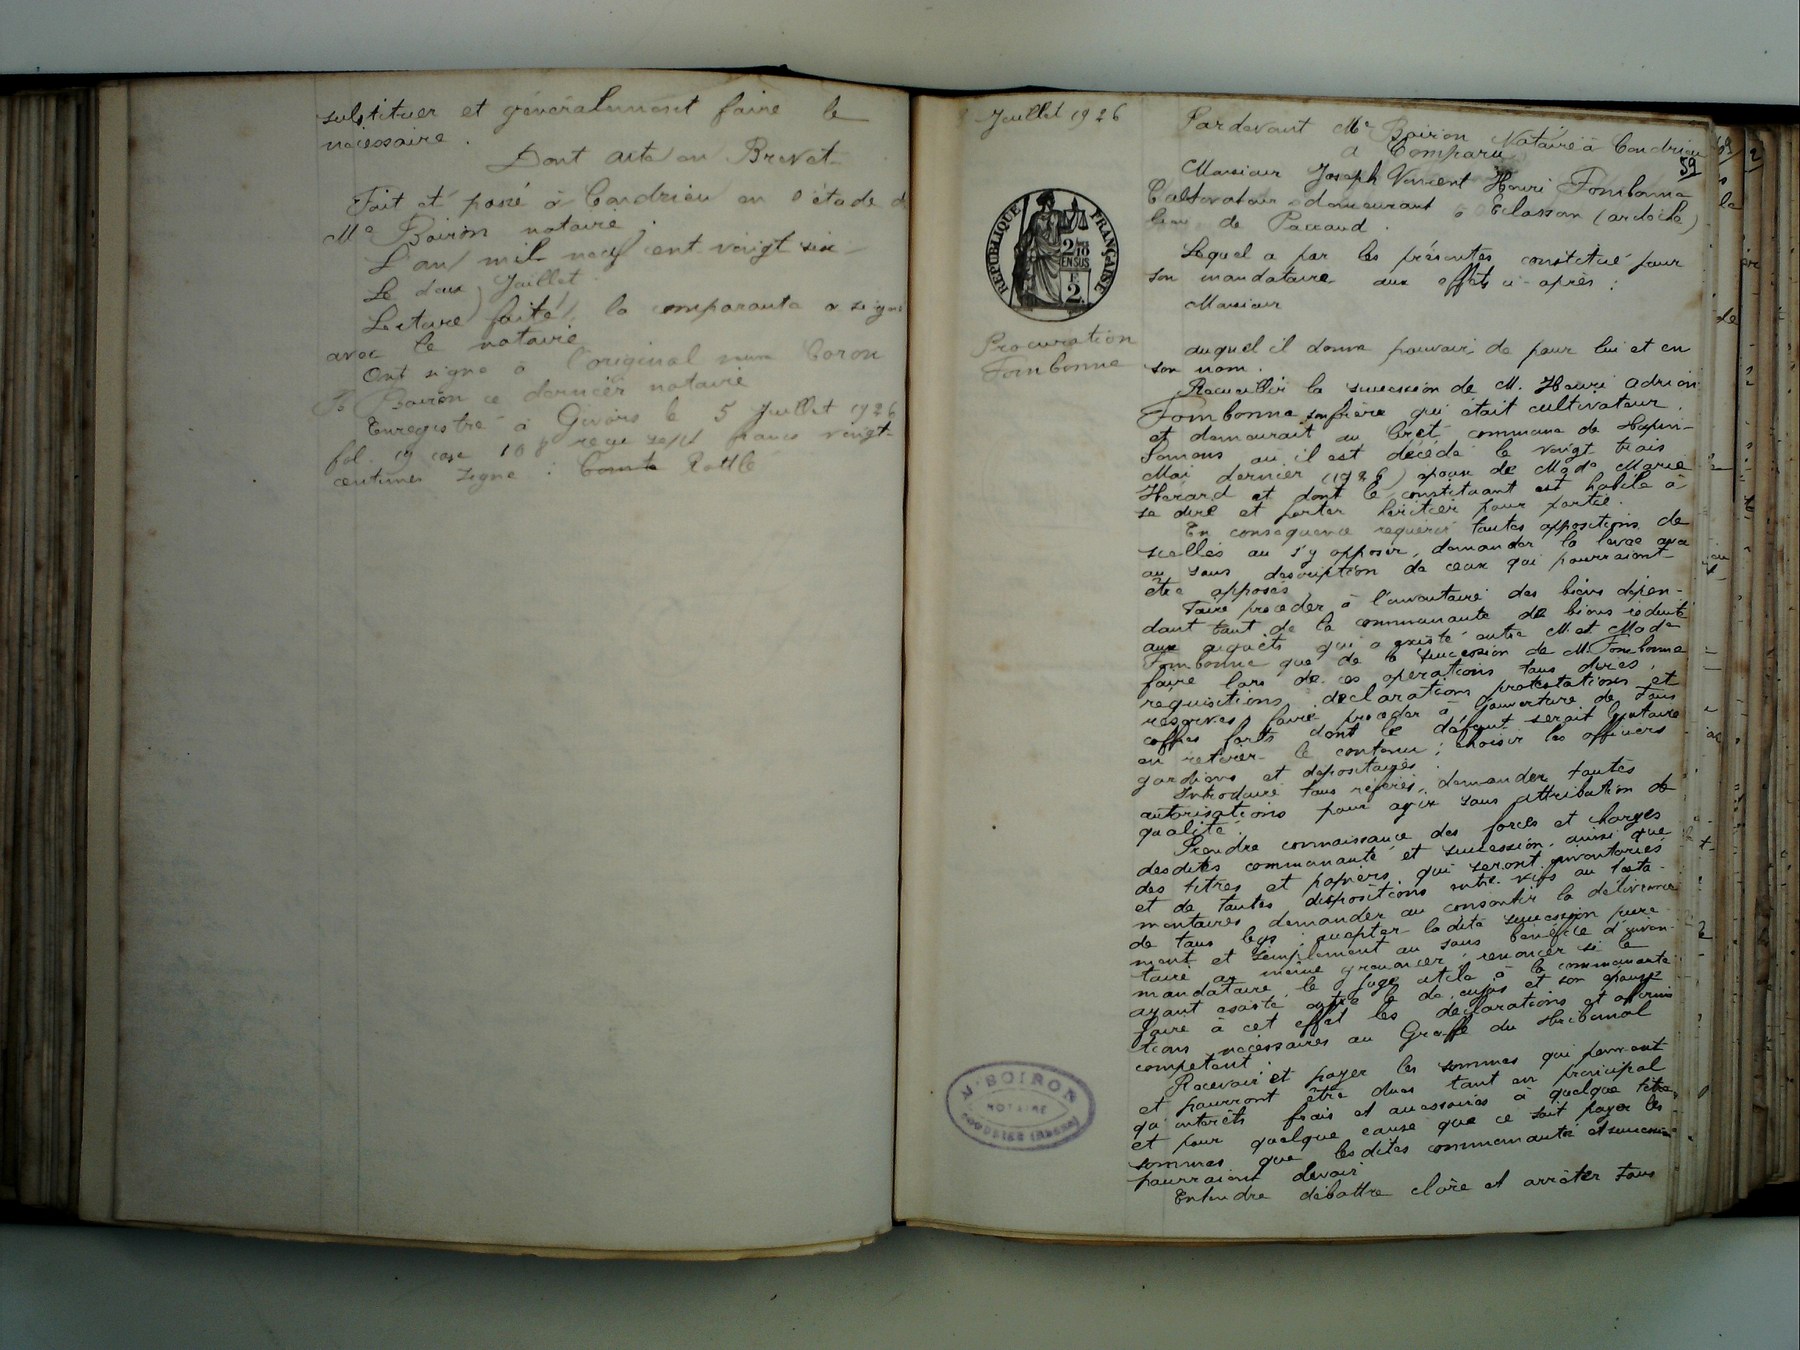 substituer et généralement faire le
nécessaire.
Dont acte en Brevet
Fait et passé à Condrieu en l'étude de
Me Boiron notaire,
L'an mil neuf cent vingt six
Le deux Juillet
Lecture faite, la comparante a signé
avec le notaire
Ont signé à l'original Coron
Boiron ce dernier notaire
Enregistré à Givors le 5 Juillet 1926
fol. 19 case 108 reçu sept francs vingt
centimes signé : Rattlé
Juillet 1926
RÉPUBLIQUE FRANÇAISE
2/10
EN SUS
2
Procuration
Fombonne
Me BOIRON
NOTAIRE
CONDRIEU (RHONE)
59
Pardevant Me Boiron Notaire à Condrieu
a Comparu
Monsieur Joseph Vincent Henri Fombonne
Cultivateur demeurant à Eclassan (ardèche)
lieu de
Lequel a par les présentes constitué pour
son mandataire aux effets ci-après :
Monsieur
auquel il donne pouvoir, de pour lui et en
son nom.
Recueillir la succession de M. Henri Adrien
Fombonne son frère qui était cultivateur
et demeurait au Crêt commune de
où il est décédé le vingt trois
Mai dernier (1926) époux de Made Marie
et dont le constituant est habile à
se dire et porter héritier pour partie.
En conséquence requérir toutes appositions de
scellés ou s'y opposer, demander la levée avec
ou sans description de ceux qui pourraient
être apposés
Faire procéder à l'inventaire des biens dépen-
dant tant de la communauté de biens réduite
aux acquêts qui a existé entre M. et Made
Fombonne que de la succession de M. Fombonne
faire lors de ces opérations tous dires,
réquisitions déclarations protestations et
réserves, faire procéder à l'ouverture de tous
coffres forts dont le défunt serait locataire
en retirer le contenu ; choisir les officiers
gardiens et dépositaires
Introduire tous référés, demander toutes
autorisations pour agir sans attribution de
qualité.
Prendre connaissance des forces et charges
desdites communauté et succession, ainsi que
des titres et papiers qui seront inventoriés
et de toutes dispositions entre vifs ou testa-
mentaires demander ou consentir la délivrance
de tous legs ; accepter ladite succession pure-
ment et simplement ou sous bénéfice d'inven-
taire ou même y renoncer, renoncer si le
mandataire le juge utile à la communauté
ayant existé entre le de cujus et son épouse
faire à cet effet les déclarations et affirma
tions nécessaires au Greffe du tribunal
compétent.
Recevoir et payer les sommes qui peuvent
et pourront être dues tant en principal
qu'intérêts frais et accessoires à quelque titre
et pour quelque cause que ce soit payer les
sommes que lesdites communauté et succession
pourraient devoir
Entendre débattre clore et arrêter tous